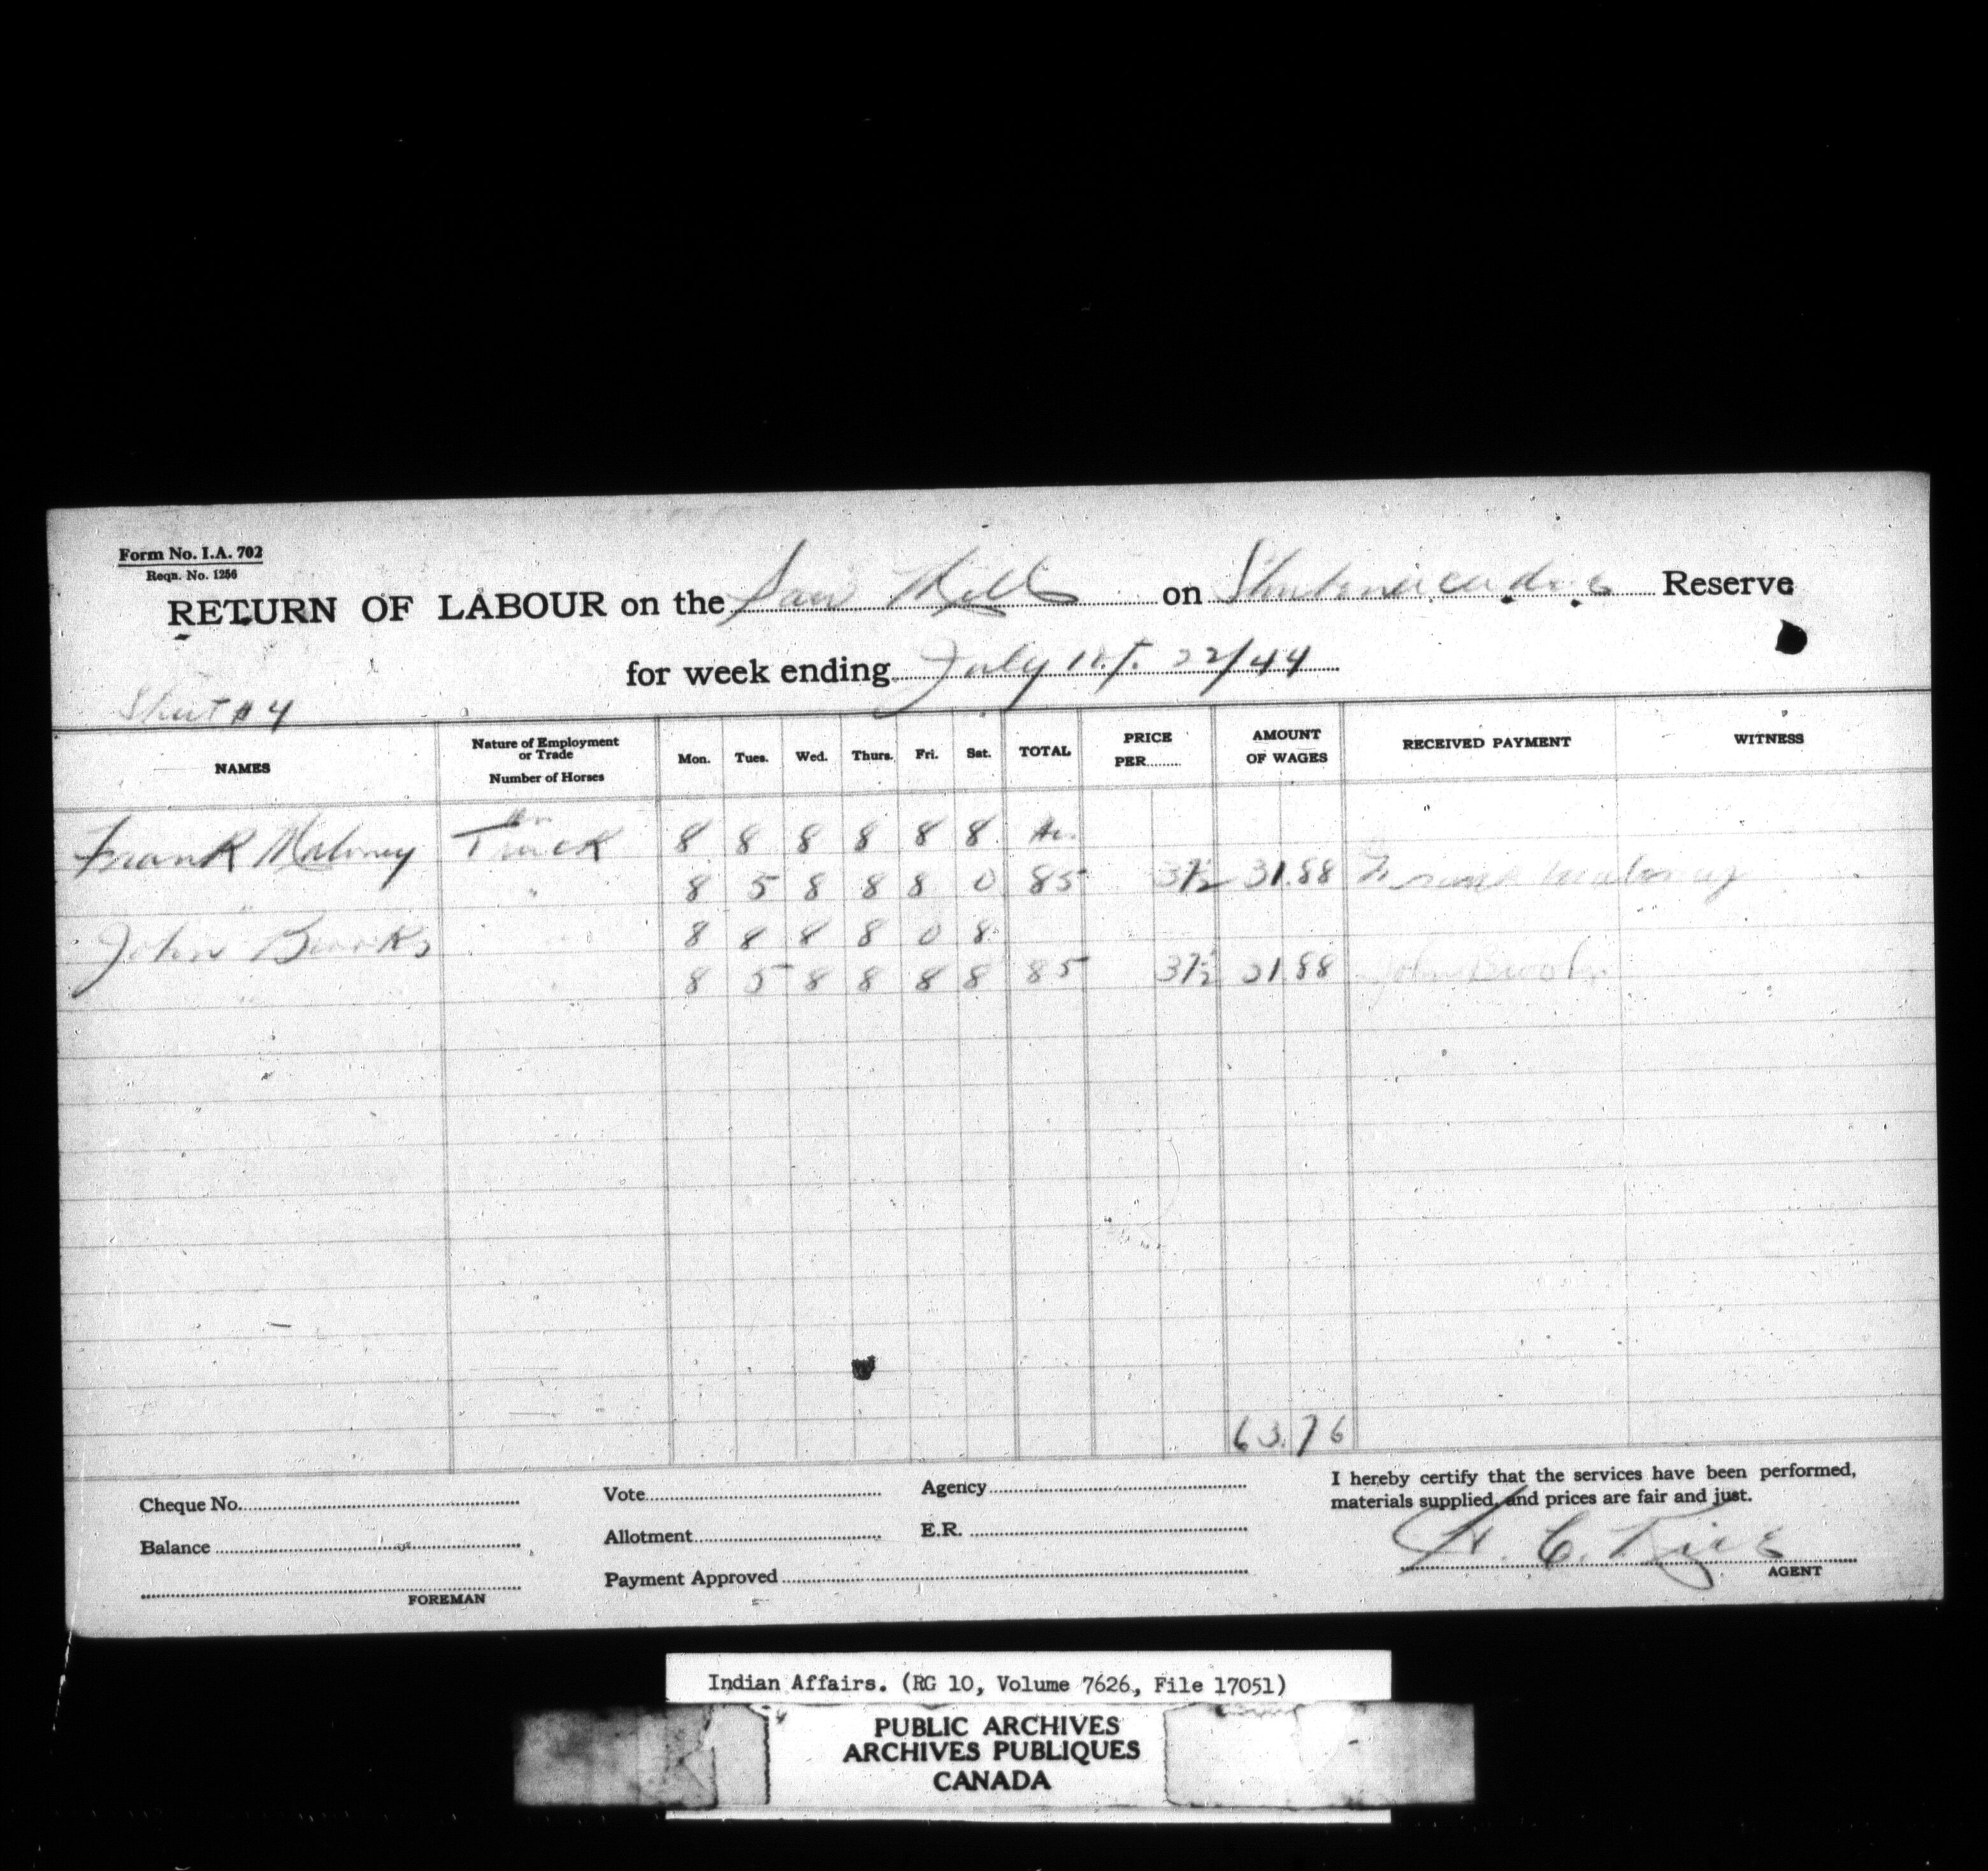 Form No. I.A. 702
Reqn. No. 1256
RETURN OF LABOUR on the Saw Mill on Shubenacadie Reserve
for week ending July 15. 22/44
Sheet #4
NAMES Nature of Employment or Trade Number of Horses Mon. Tues. Wed. Thurs. Fri. Sat. TOTAL PRICE PER........ AMOUNT OF WAGES RECEIVED PAYMENT WITNESS
Frank Maloney Truck 8 8 8 8 8 8 Hr.
" " 8 5 8 8 8 0 85 37½ 31.88 Frank Maloney
John Brooks 8 8 8 8 0 8
" 8 5 8 8 8 8 85 37½ 31.88 John Brooks
63.76
Cheque No. Vote Agency I hereby certify that the services have been performed,
materials supplied, and prices are fair and just.
Balance Allotment E.R.
H. C. Rice
Payment Approved AGENT
FOREMAN
Indian Affairs. (RG 10, Volume 7626, File 17051)
PUBLIC ARCHIVES
ARCHIVES PUBLIQUES
CANADA